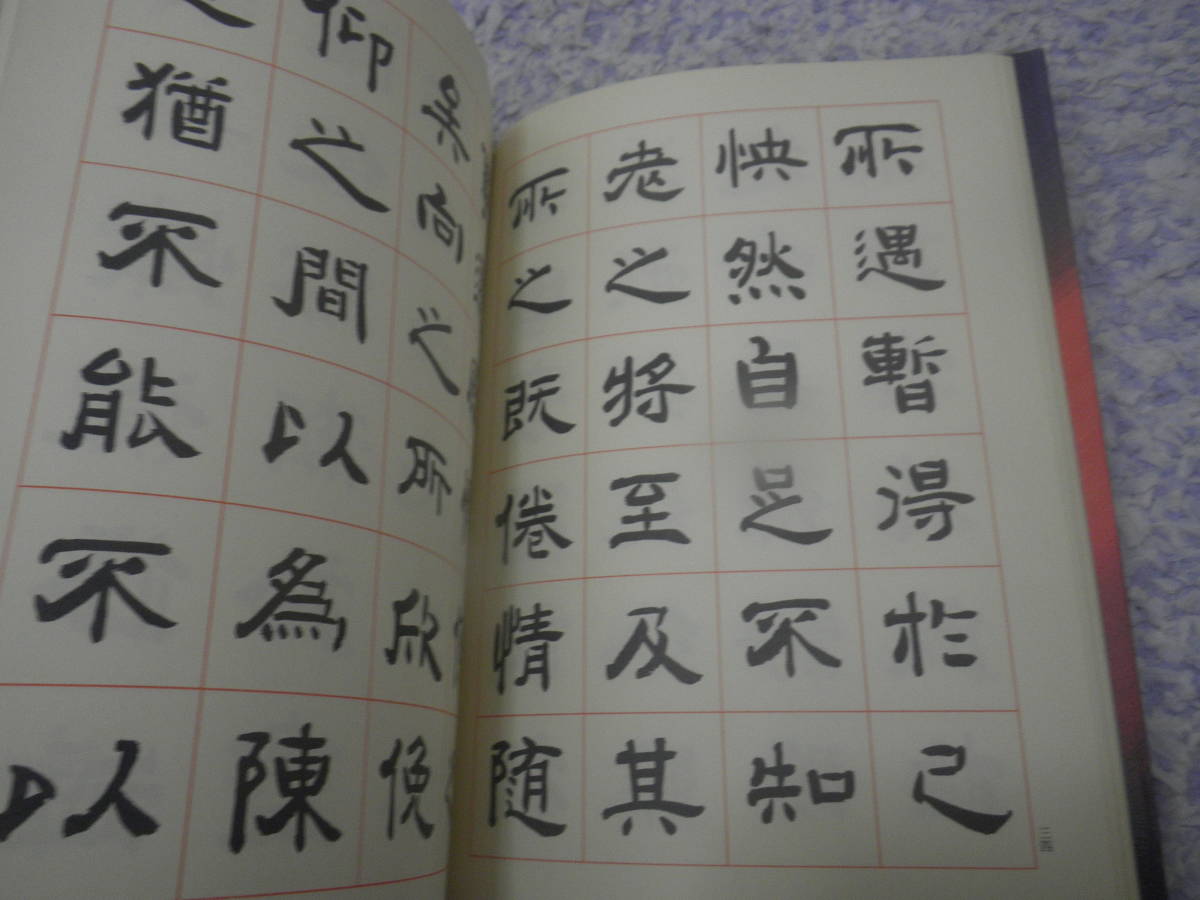 所遇暫得於己
怏然自足不知
老之将至及其
所之既倦情随
三四
矣向之所欣俛
仰之間以為陳
猶不能不以